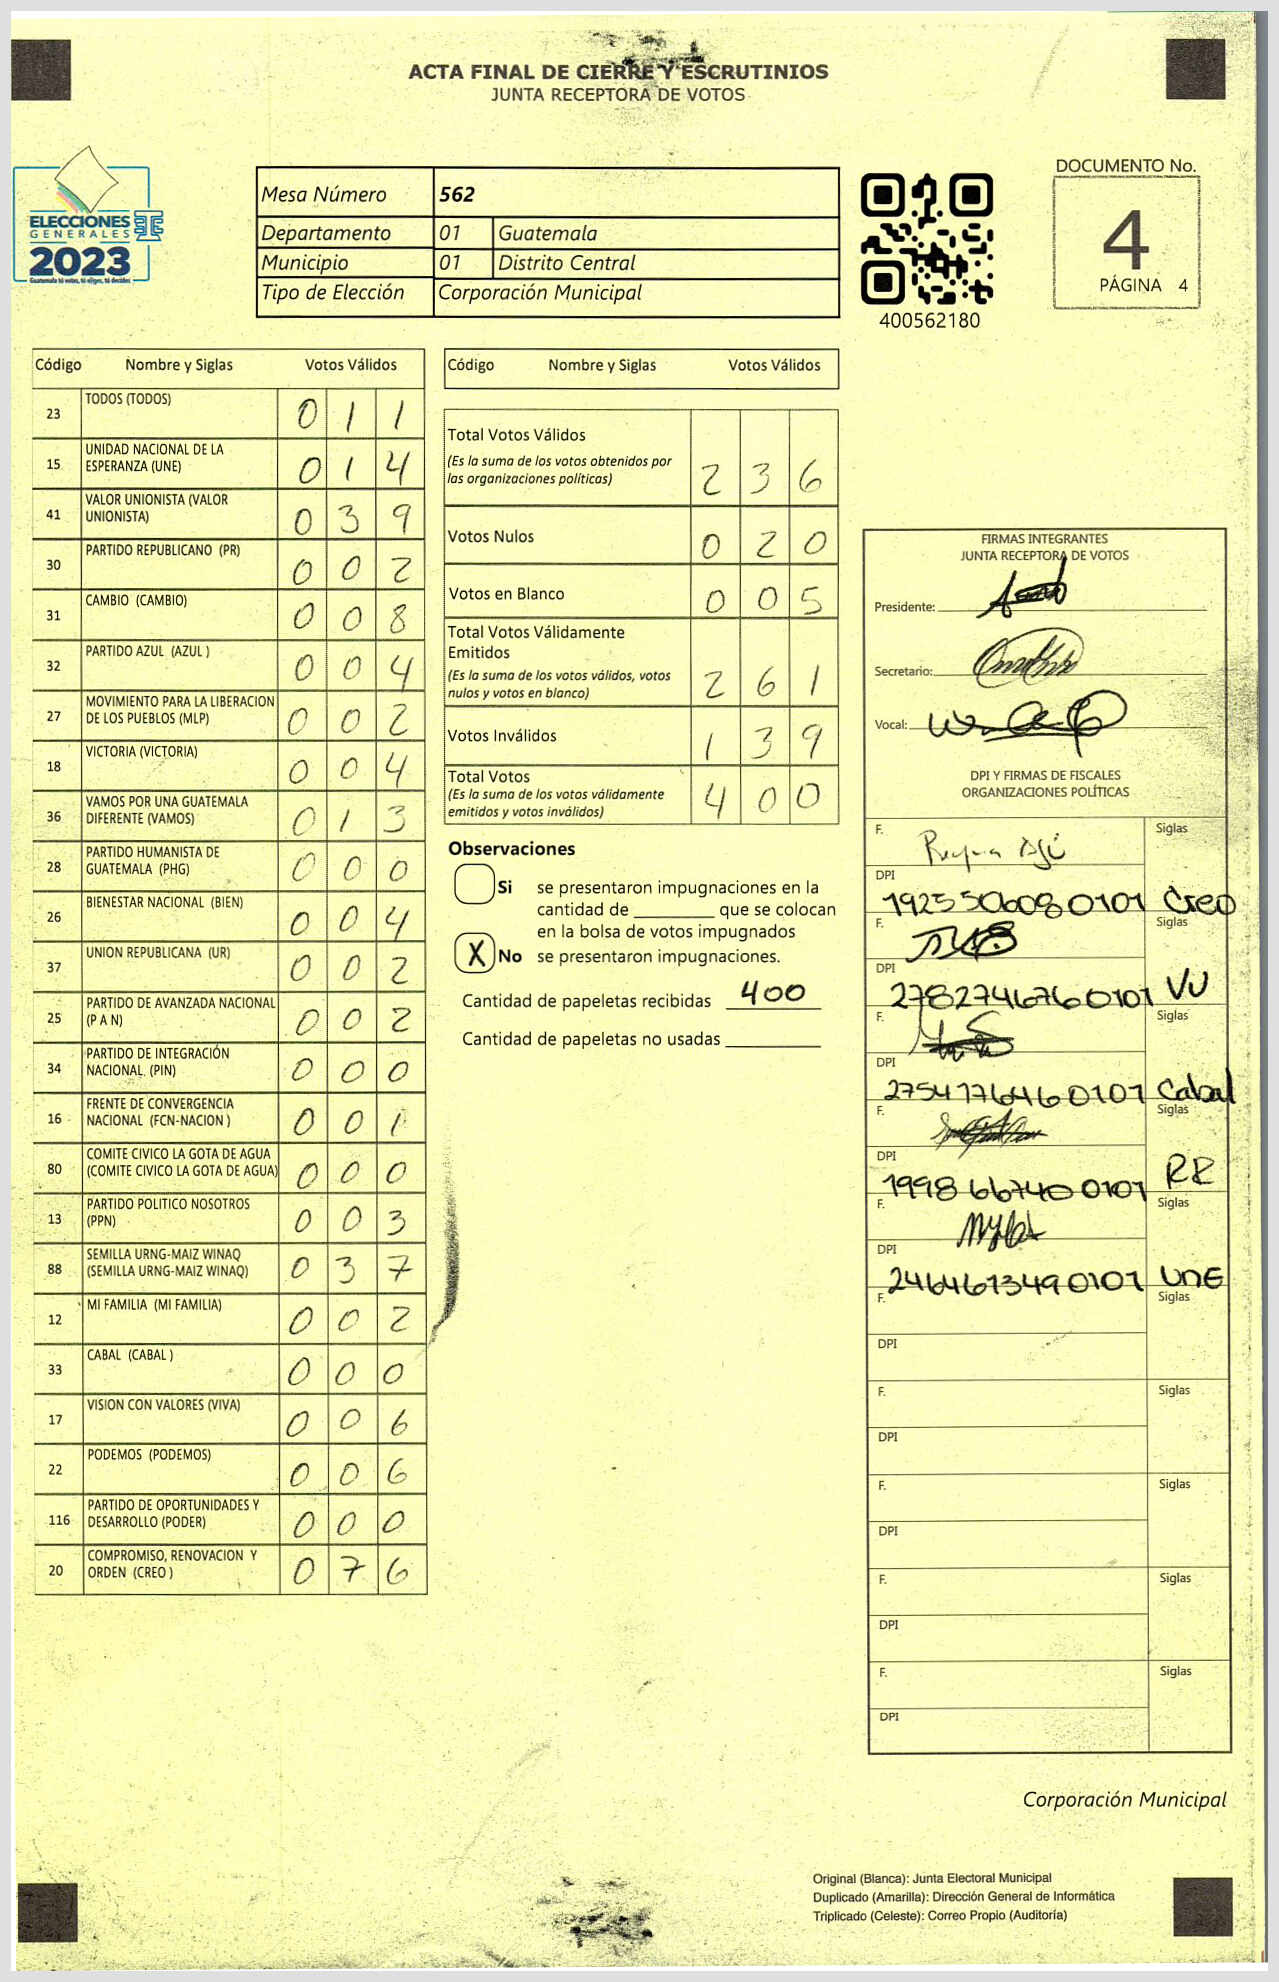 ACTA FINAL DE CIERRE Y ESCRUTINIOS
JUNTA RECEPTORA DE VOTOS
ELECCIONES
GENERALES
2023
Guatemala tú votas, tú eliges, tú decides
Mesa Número 562
Departamento 01 Guatemala
Municipio 01 Distrito Central
Tipo de Elección Corporación Municipal
400562180
DOCUMENTO No.
4
PÁGINA 4
Código Nombre y Siglas Votos Válidos
23 TODOS (TODOS) 0 1 1
15 UNIDAD NACIONAL DE LA
ESPERANZA (UNE) 0 1 4
41 VALOR UNIONISTA (VALOR
UNIONISTA) 0 3 9
30 PARTIDO REPUBLICANO (PR) 0 0 2
31 CAMBIO (CAMBIO) 0 0 8
32 PARTIDO AZUL (AZUL ) 0 0 4
27 MOVIMIENTO PARA LA LIBERACION
DE LOS PUEBLOS (MLP) 0 0 2
18 VICTORIA (VICTORIA) 0 0 4
36 VAMOS POR UNA GUATEMALA
DIFERENTE (VAMOS) 0 1 3
28 PARTIDO HUMANISTA DE
GUATEMALA (PHG) 0 0 0
26 BIENESTAR NACIONAL (BIEN) 0 0 4
37 UNION REPUBLICANA (UR) 0 0 2
25 PARTIDO DE AVANZADA NACIONAL
(P A N) 0 0 2
34 PARTIDO DE INTEGRACIÓN
NACIONAL (PIN) 0 0 0
16 FRENTE DE CONVERGENCIA
NACIONAL (FCN-NACION ) 0 0 1
80 COMITE CIVICO LA GOTA DE AGUA
(COMITE CIVICO LA GOTA DE AGUA) 0 0 0
13 PARTIDO POLITICO NOSOTROS
(PPN) 0 0 3
88 SEMILLA URNG-MAIZ WINAQ
(SEMILLA URNG-MAIZ WINAQ) 0 3 7
12 MI FAMILIA (MI FAMILIA) 0 0 2
33 CABAL (CABAL ) 0 0 0
17 VISION CON VALORES (VIVA) 0 0 6
22 PODEMOS (PODEMOS) 0 0 6
116 PARTIDO DE OPORTUNIDADES Y
DESARROLLO (PODER) 0 0 0
20 COMPROMISO, RENOVACION Y
ORDEN (CREO ) 0 7 6
Código Nombre y Siglas Votos Válidos
Total Votos Válidos
(Es la suma de los votos obtenidos por
las organizaciones políticas) 2 3 6
Votos Nulos 0 2 0
Votos en Blanco 0 0 5
Total Votos Válidamente
Emitidos
(Es la suma de los votos válidos, votos
nulos y votos en blanco) 2 6 1
Votos Inválidos 1 3 9
Total Votos
(Es la suma de los votos válidamente
emitidos y votos inválidos) 4 0 0
Observaciones
Si se presentaron impugnaciones en la
cantidad de ________ que se colocan
en la bolsa de votos impugnados
X No se presentaron impugnaciones.
Cantidad de papeletas recibidas 400
Cantidad de papeletas no usadas
FIRMAS INTEGRANTES
JUNTA RECEPTORA DE VOTOS
Presidente:
Secretario:
Vocal:
DPI Y FIRMAS DE FISCALES
ORGANIZACIONES POLÍTICAS
F. Siglas
DPI
1925506080101 Creo
F. Siglas
DPI
2782746760101 VU
F. Siglas
DPI
2754177646 0101 Cabal
F. Siglas
DPI
1998 66740 0101 RR
F. Siglas
DPI
2464673490101 UNE
F. Siglas
DPI
F. Siglas
DPI
F. Siglas
DPI
F. Siglas
DPI
F. Siglas
DPI
Corporación Municipal
Original (Blanca): Junta Electoral Municipal
Duplicado (Amarilla): Dirección General de Informática
Triplicado (Celeste): Correo Propio (Auditoría)